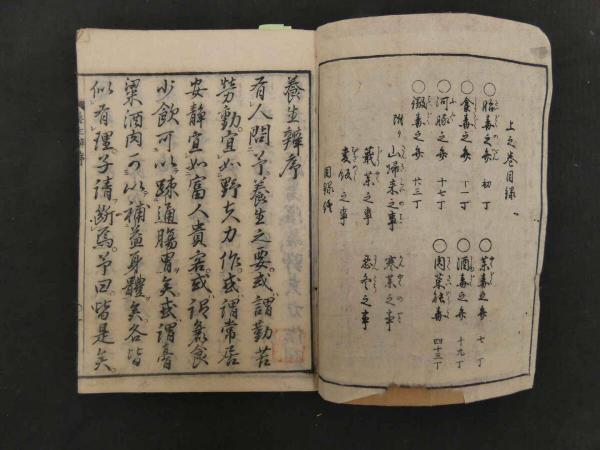 上之巻目録
〇胎毒之弁 初丁
〇食毒之弁 十二丁
〇河豚之弁 十七丁
〇黴毒之弁 廿三丁
附り 山帰来之事
蕺菜之事
麦飯之事
目録終
〇茶毒之弁 七丁
〇酒毒之弁 十九丁
〇肉菜能毒 四十三丁
寒菜之事
忍冬之事
養生辨序
有人問予養生之要或謂勤苦
労動宜如野夫力作或謂常居
安静宜如富人貴客或謂麁食
少飲可以疎通腸胃矣或謂膏
粱酒肉可以補益身體矣各皆
似有理子請断焉予曰皆是矣